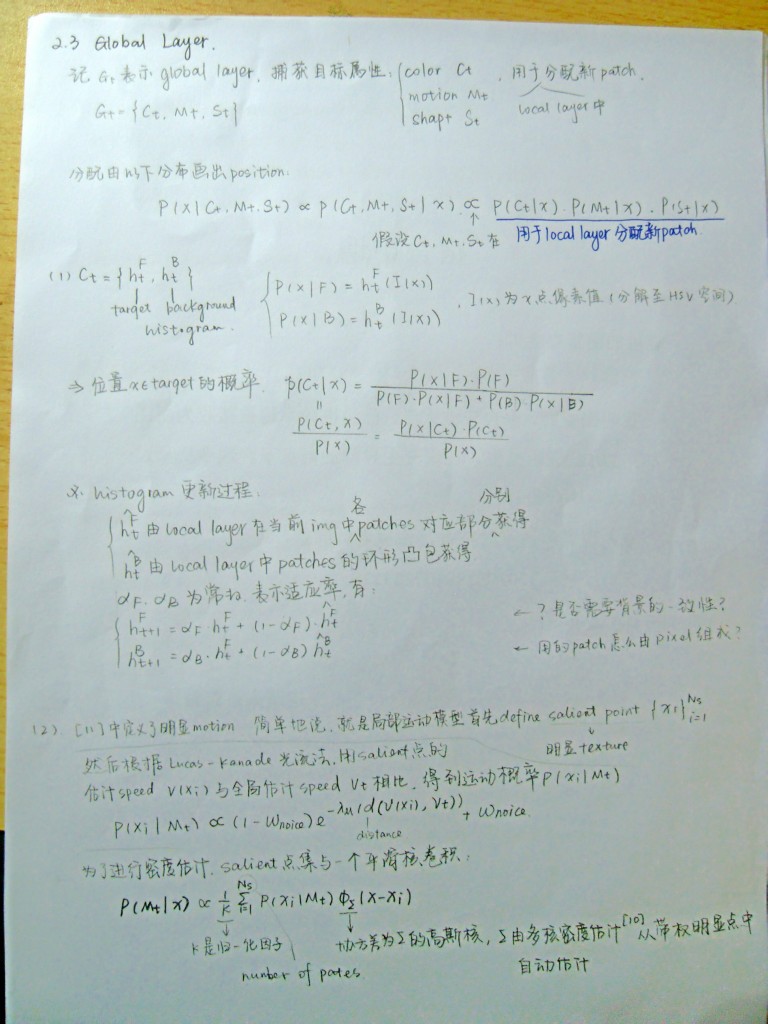 2.3 Global Layer.
记 Gt 表示 global layer, 捕获目标属性: { color Ct , 用于分配新patch.
motion Mt
shapt St
local layer 中
Gt = {Ct, Mt, St}
分配由以下分布画出position:
P(x|Ct, Mt, St) ∝ p(Ct, Mt, St|x) ∝ P(Ct|x)·P(Mt|x)·P(St|x)
↑
假设Ct, Mt, St在
用于local layer 分配新patch.
(1) Ct = {ht^F, ht^B}
target background
histogram.
{ P(x|F) = ht^F(I(x))
P(x|B) = ht^B(I(x))
, I(x)为x点像素值(分解至HSV空间)
⇒ 位置x∈target的概率. p(Ct|x) = P(x|F)·P(F) / P(F)·P(x|F) + P(B)·P(x|B)
=
P(Ct, x) / P(x) = P(x|Ct)·P(Ct) / P(x)
histogram 更新过程.
{ ĥt^F 由 local layer 在当前 img 中各patches 对应部分分别获得
ĥt^B 由 local layer 中 patches 的环形凸包获得
αF, αB 为常数, 表示适应率, 有:
{ ht+1^F = αF·ht^F + (1-αF)·ĥt^F
ht+1^B = αB·ht^F + (1-αB) ĥt^B
← ? 是否需要背景的一致性?
← 用的patch怎么由pixel组成?
(2). [1]中定义了明显motion 简单地说, 就是局部运动模型首先define salient point {xi}i=1^Ns
明显texture
然后根据 Lucas-Kanade 光流法, 用salient点的
估计speed V(xi)与全局估计speed Vt 相比, 得到运动概率P(xi|Mt)
P(xi|Mt) ∝ (1-Wnoice)e^-λM(d(V(xi), Vt)) + Wnoice.
distance
为了进行密度估计, salient 点集与一个平滑核卷积:
P(Mt|x) ∝ 1/K Σi=1^Ns P(xi|Mt) ΦΣ(x-xi)
K是归一化因子
number of pates
协方差为Σ的高斯核, Σ由多核密度估计[10]从带权明显点中
自动估计